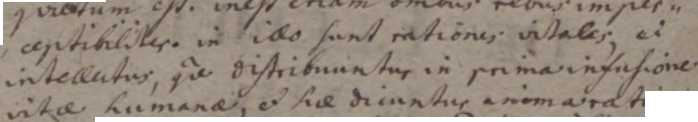 quietum est. inest etiam omibus rebus imper=
ceptibiliter. in illo sunt rationes vitales, et
intellectus, quæ distribuuntur in prima infusione
vitæ humanæ, & hæ dicuntur anima rati